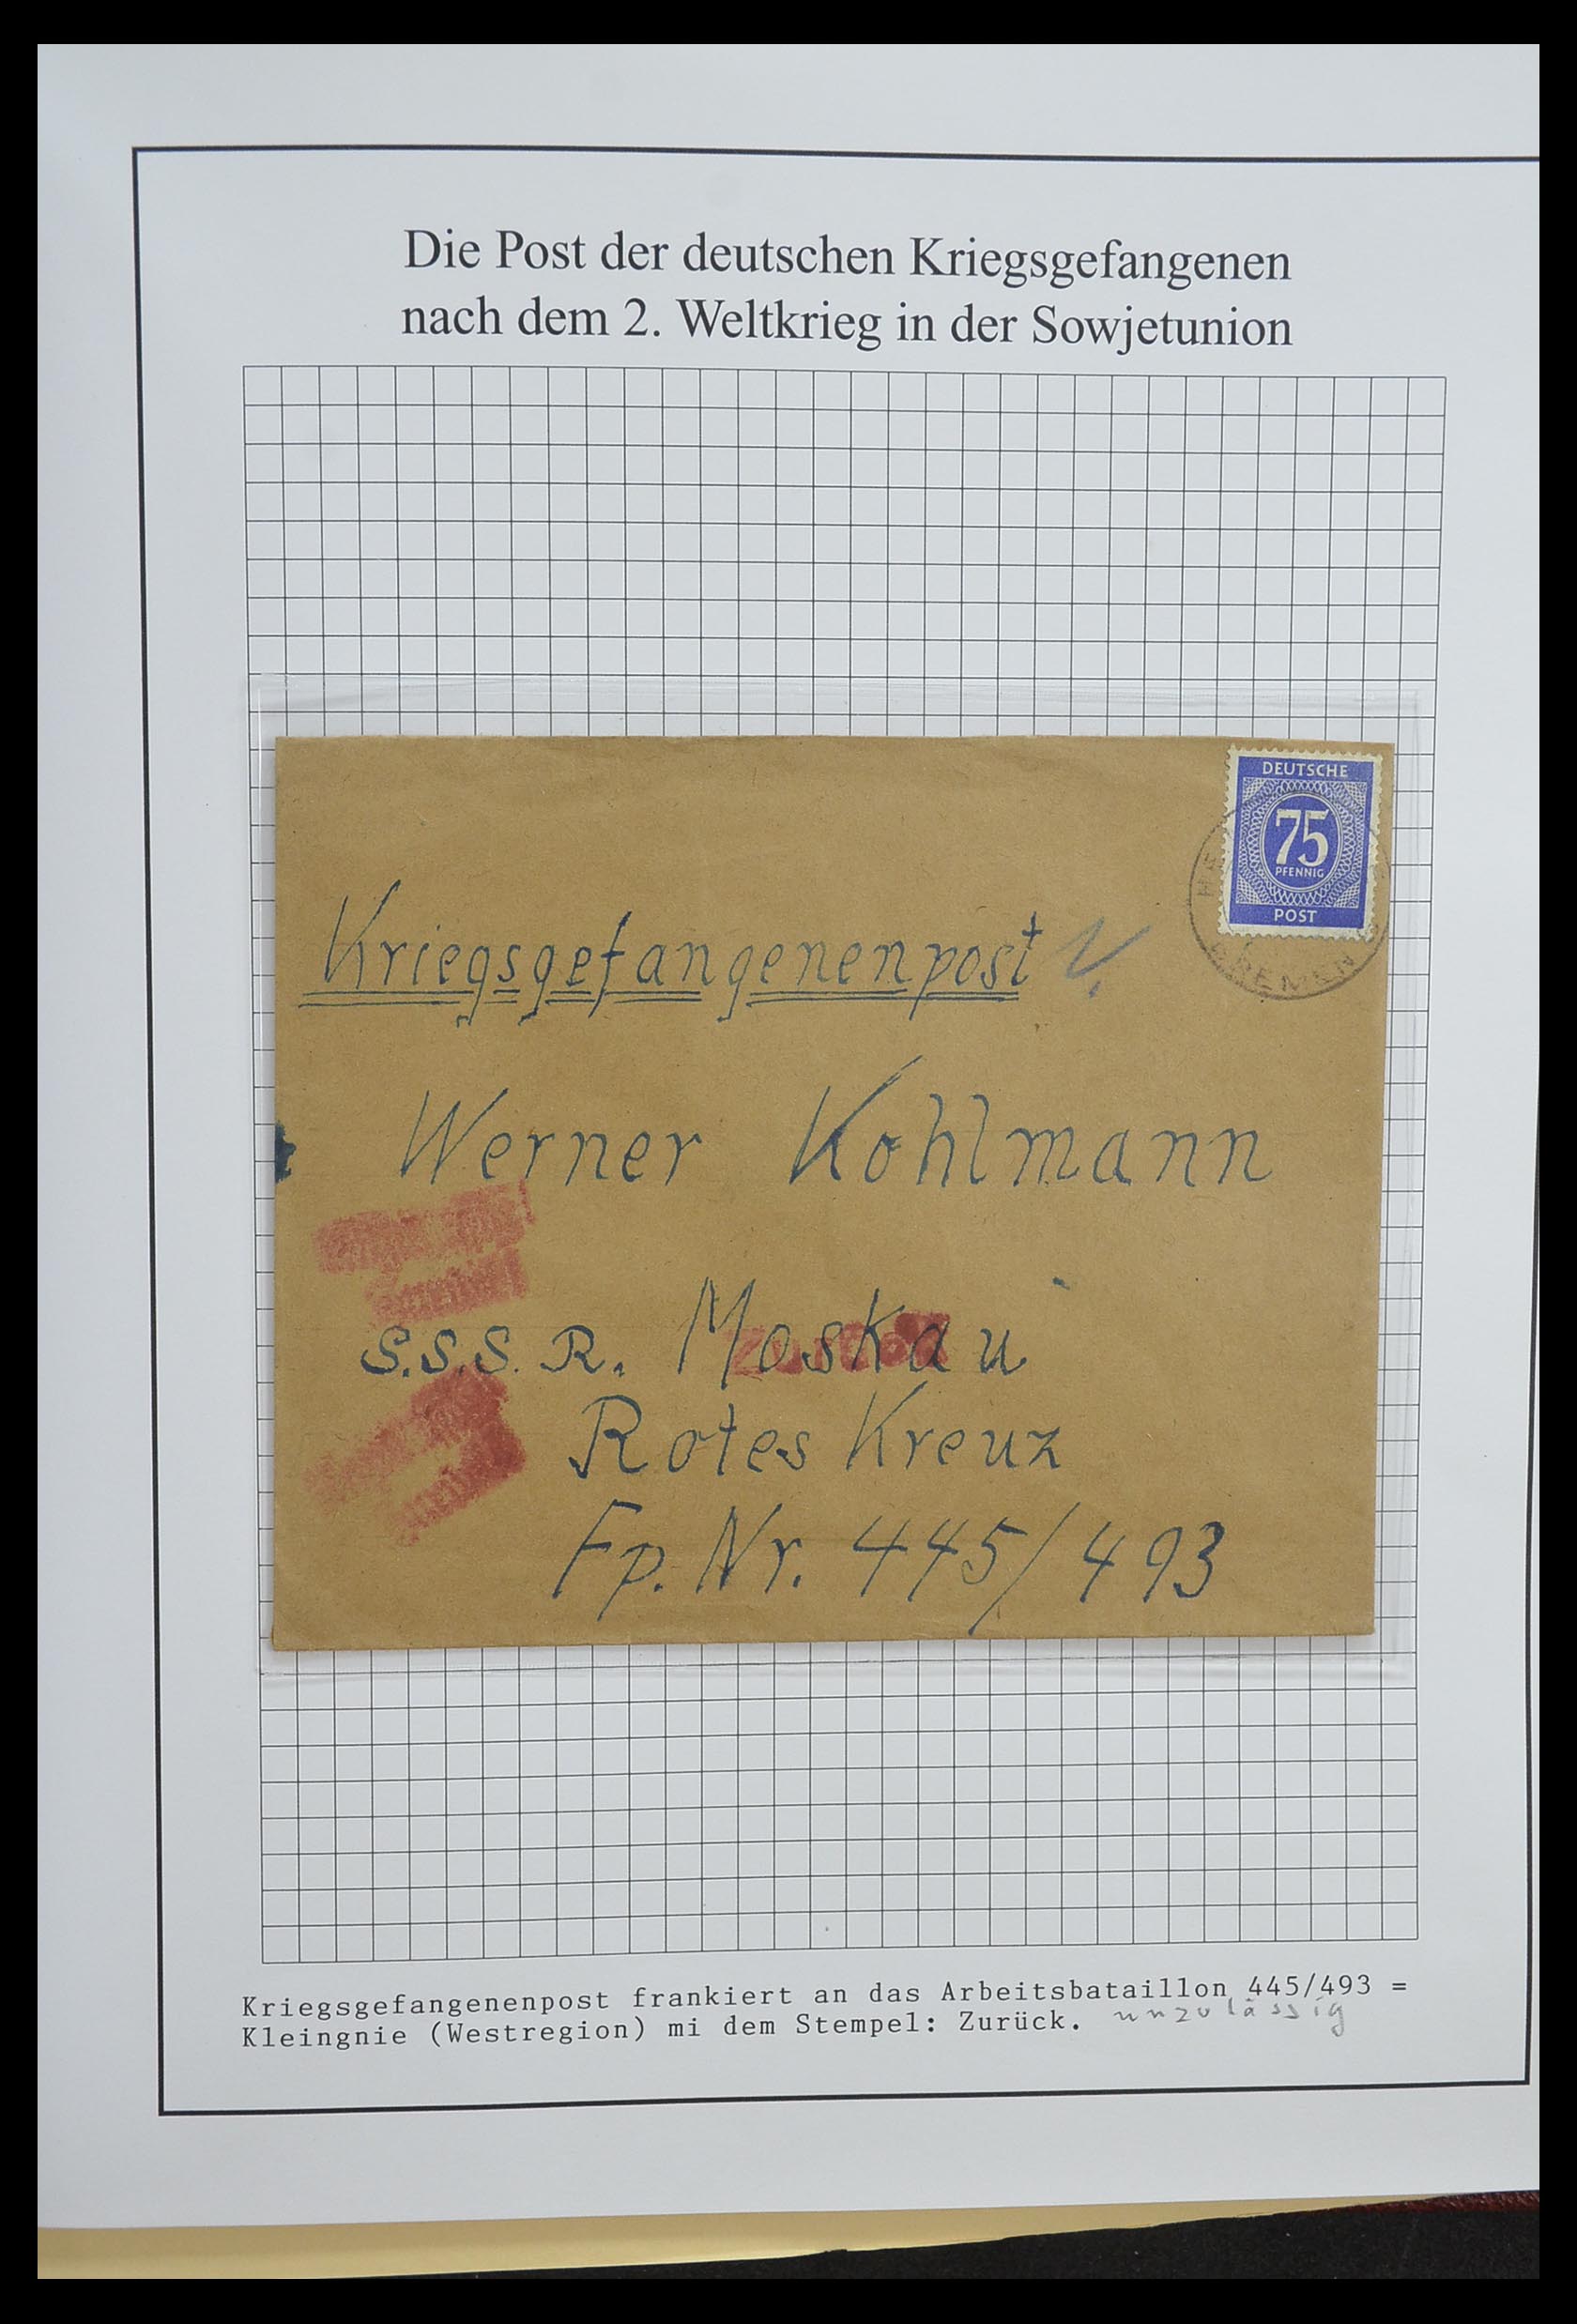 Die Post der deutschen Kriegsgefangenen
nach dem 2. Weltkrieg in der Sowjetunion
DEUTSCHE
75
PFENNIG
POST
BREMEN
Kriegsgefangenenpost
Werner Kohlmann
Zurück
S.S.S.R. Moskau
Rotes Kreuz
Fp. Nr. 445/493
Kriegsgefangenenpost frankiert an das Arbeitsbataillon 445/493 =
Kleingnie (Westregion) mi dem Stempel: Zurück. unzulässig